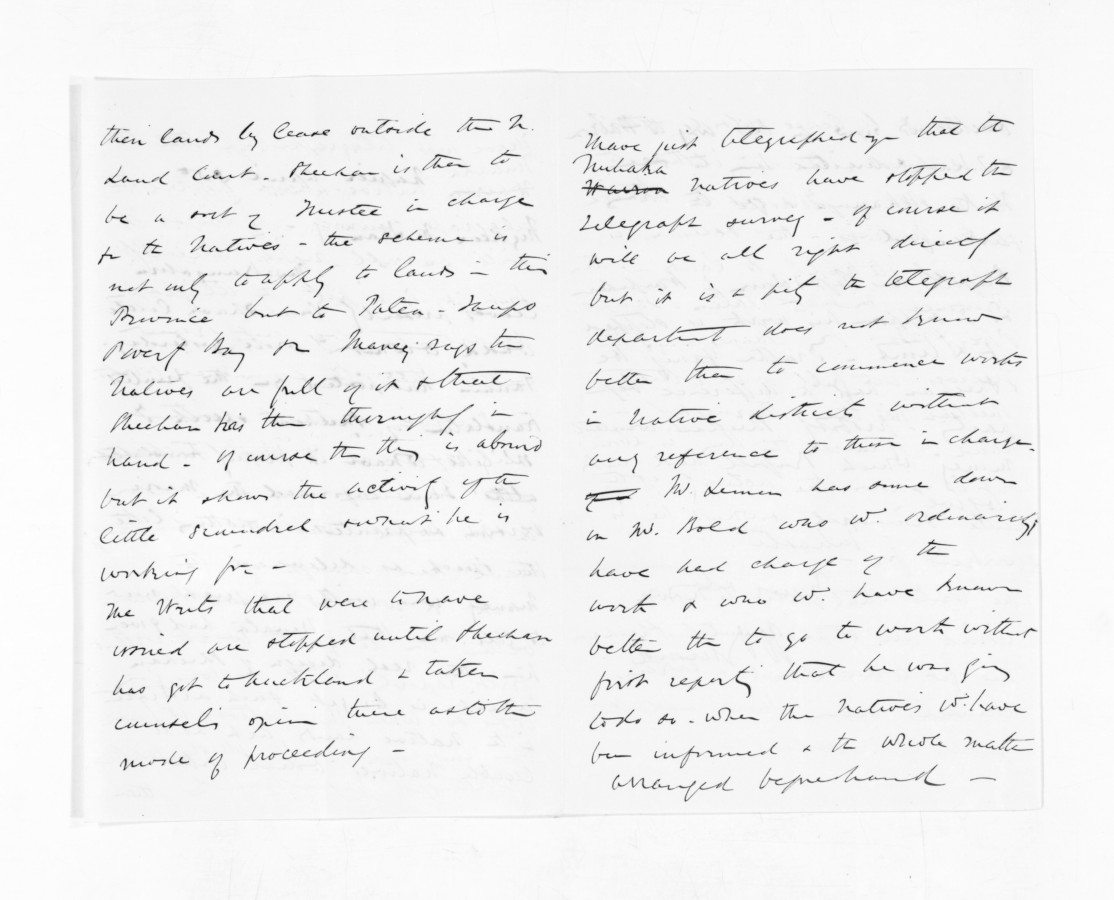 their lands by lease outside the N.
Land Court - Sheehan is then to
be a sort of Trustee in charge
for the Natives - the scheme is
not only to apply to lands in this
Province but to Patea - Taupo
Poverty Bay for Maney says the
Natives are full of it & that
Sheehan has the thing thoroughly in
hand - Of course the thing is absurd
but it shows the activity of the
little scoundrel & what he is
working for -
The Writs that were to have
issued are stopped until Sheehan
has got to Auckland & taken
counsel's opinion there as to the
mode of proceeding -
I have just telegraphed you that the
Nuhaka
natives have stopped the
telegraph survey - Of course it
will be all right directly
but it is a pity the telegraph
department does not know
better than to commence works
in Native districts without
any reference to those in charge -
Mr. Lemon has some down
on Mr. Bold who wd. ordinarily
have had charge of the
work & who wd. have known
better than to go to work without
first reporting that he was going
to do so - when the Natives wd. have
been informed & the whole matter
arranged beforehand -